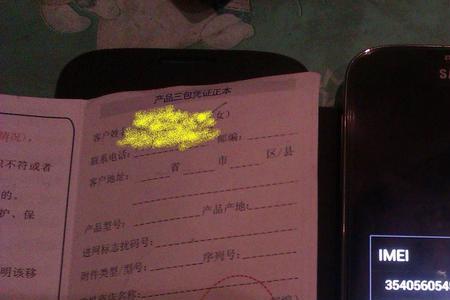 产品三包凭证正本
客户姓 女）
联系电话： 邮编：
客户地址： 省 市 区/县
产品型号： 产品产地：
进网标志扰码号：
附件类型/型号： 序列号：
情况），
识不符或者
的。
护、保
明该移
S
IMEI
354056054